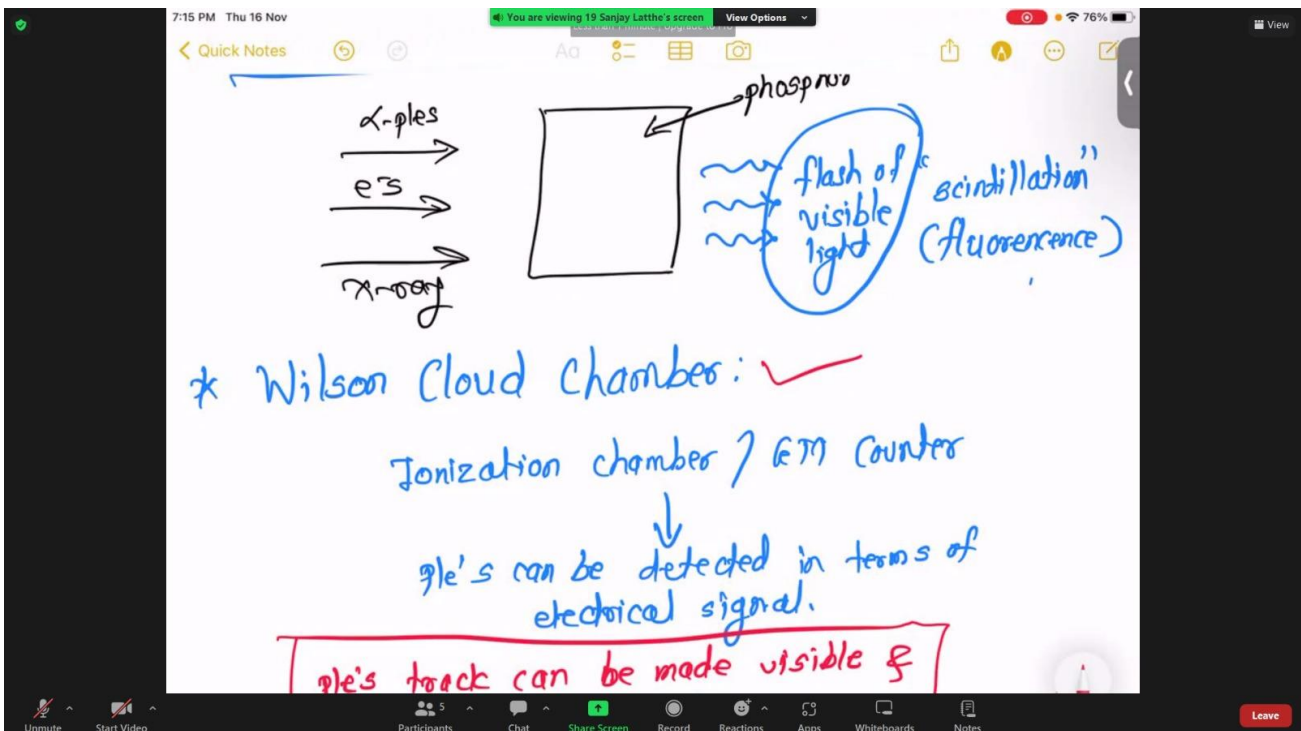 7:15 PM Thu 16 Nov
You are viewing 19 Sanjay Latthe's screen
View Options
76%
View
Quick Notes
Aa
phosphor
α-ples
e⁻s
x-ray
flash of
visible
light
"scintillation"
(fluorencence)
* Wilson Cloud Chamber:
Ionization chamber / GM Counter
↓
ple's can be detected in terms of
electrical signal.
ple's track can be made visible &
Unmute
Start Video
5
Participants
Chat
Share Screen
Record
Reactions
Apps
Whiteboards
Notes
Leave